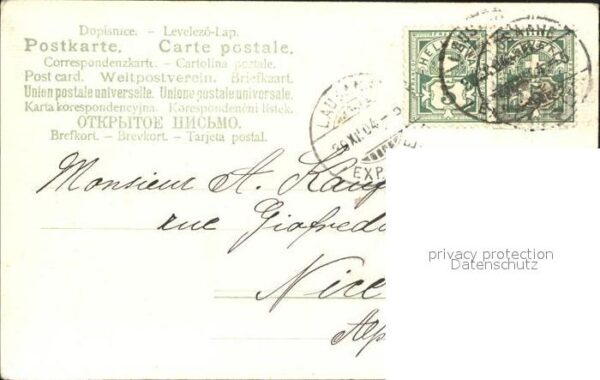 Dopisnice. - Levelező-Lap.
Postkarte. Carte postale.
Correspondenzkarte. - Cartolina postale.
Post card. Weltpostverein. Briefkaart.
Union postale universelle. Unione postale universale.
Karta korespondencyjna. Korespondenční lístek.
ОТКРЫТОЕ ПИСЬМО.
Brefkort. - Brevkort. - Tarjeta postal.
HEL
5
LAUSANNE
LAUSAN
29 XII 04 - 5
EXP
Monsieur A. Kauf
rue Giofredo
Nice
Alp
privacy protection
Datenschutz